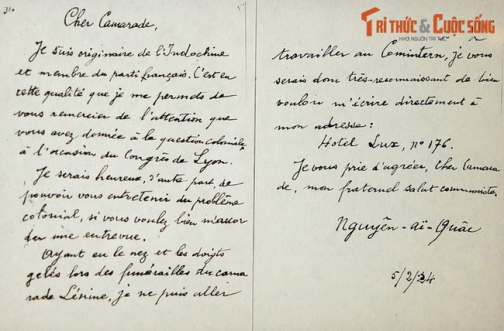 Cher Camarade,
Je suis originaire de l'Indochine
et membre du parti français. C'est en
cette qualité que je me permets de
vous remercier de l'attention que
vous avez donnée à la question coloniale
à l'occasion du Congrès de Lyon.
Je serais heureux, d'autre part, de
pouvoir vous entretenir du problème
colonial, si vous voulez bien m'accor
der une entrevue.
Ayant eu le nez et les doigts
gelés lors des funérailles du cama
rade Lénine, je ne puis aller
TRI THỨC & CUỘC SỐNG
travailler au Comintern, je vous
serais donc très-reconnaissant de bien
vouloir m'écrire directement à
mon adresse:
Hotel Lux, n° 176.
Je vous prie d'agréer, cher camara
de, mon fraternel salut communiste.
Nguyên-aï-Quâc
5/2/24